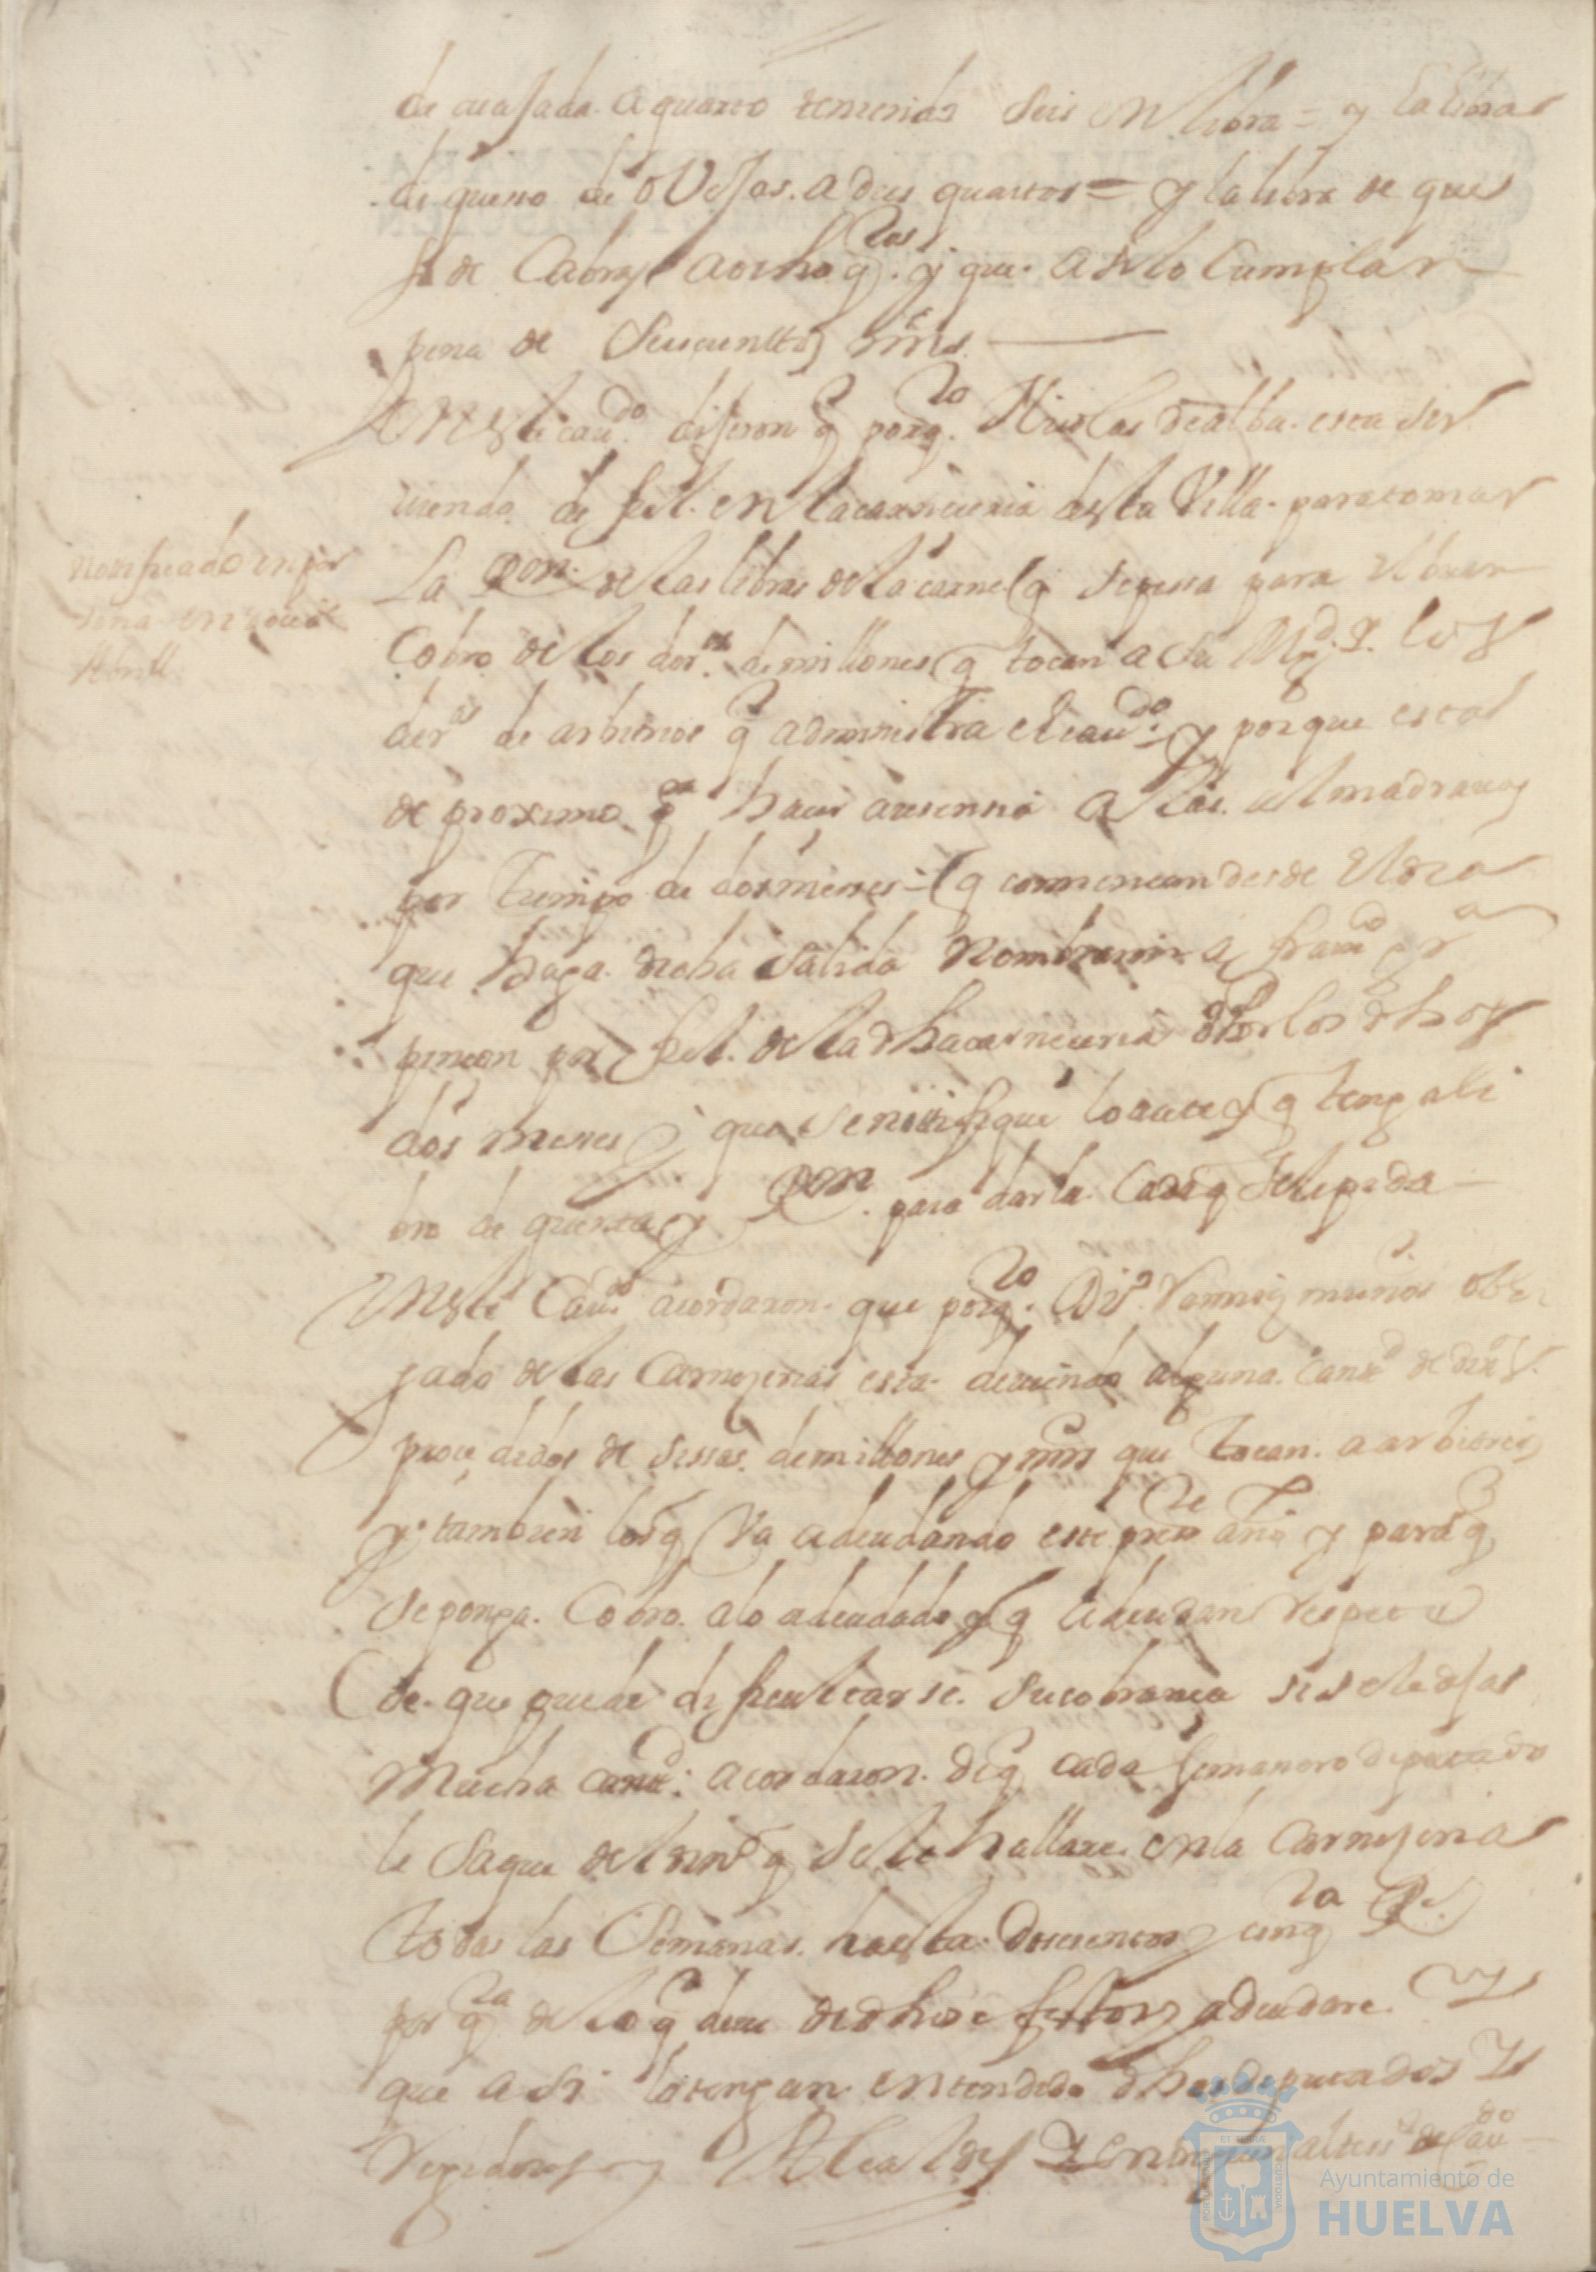 de cuajada. a quarto temerida seis en libra = y la libra
de queso de oVejas. a dies quartos = y la libra de ques
so de Cabras a ocho q.tos y que. asi lo Cumplan
pena de Seiscienttos mrs.
En este cau.do dijeron q porq.to Nicolas de alba. esta sir
uiendo de fiel. en la carniceria desta Villa. para tomar
La Ron. de las libras de la carne q se pessa para el buen
Cobro de los dor.s de millones q tocan a Su Mgd. y los
der.os de arbitrios q administra el cau.do y porque esta
de proximo p.a hacer ausensia a las almadrauas
por tiempo de dos messes = q comiensan desde el dia
que haga. dicha salida Nombraron a fran.co gr.a
pinçon por fiel. de la dha carniceria por los dhos
dos messes y que se notifique lo açete y q tenga li
bro de quenta y Ron. para darla Cada q se le pida
En este Cau.do acordaron. que porq.to Di.o Ramires muños obli
gado de las Carnizerias esta deuiendo alguna. cant.d de drs.
procedidos de sissas. de millones y mrs que tocan. a arbitrios
y tambien los q Va adeudando este pres.te año y para q
se ponga. Cobro. a lo adeudado y q adeudare Respecto
de que puede dificultarse. su cobransa si se le dejas
Mucha cant.d acordaron. de q cada semanero diputado
le saque del din.o q se le hallare. en la Carnizeria
todas las Semanas. hasta. Doscientos y cinq.ta R.s
por q.ta de lo q deue de dhos efectos y adeudare. Y
que asi lo tengan entendido dhos diputados Y
Regidores y Alcaldes
notificado en per
sona en
Abrill
Ayuntamiento de
HUELVA